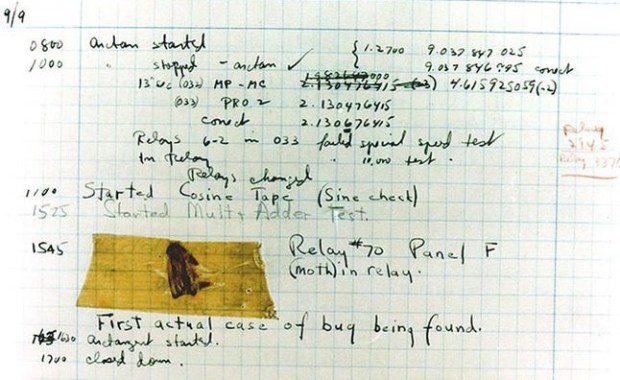 9/9
0800 Antan started
1000 " stopped - antan ✓ { 1.2700 9.037 847 025
9.037 846 995 conect
13"uc (032) MP - MC 2.130476415 (-3) 4.615925059(-2)
(033) PRO 2 2.130476415
conect 2.130676415
Relays 6-2 in 033 failed special speed test
in Relay " 10.000 test .
Relays changed
1100 Started Cosine Tape (Sine check)
1525 Started Mult + Adder Test.
1545 Relay #70 Panel F
(moth) in relay.
First actual case of bug being found.
1630 Antangent started.
1700 closed down .
Relay
Relay